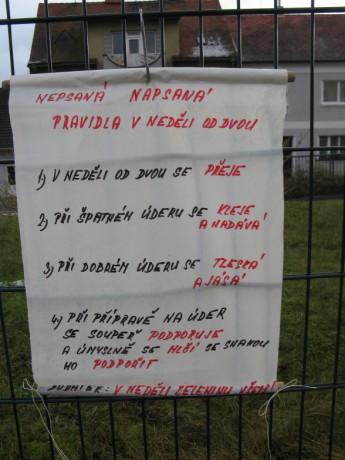 NEPSANÁ NAPSANÁ
PRAVIDLA V NEDĚLI OD DVOU
1) V NEDĚLI OD DVOU SE PŘEJE
2) PŘI ŠPATNÉM ÚDERU SE KLEJE
A NADÁVÁ
3) PŘI DOBRÉM ÚDERU SE TLESKÁ
A JÁSÁ
4) PŘI PŘÍPRAVĚ NA ÚDER
SE SOUPEŘ PODPORUJE
A ÚMYSLNĚ SE MLČÍ SE SNAHOU
HO PODPOŘIT
V NEDĚLI ZELENINU